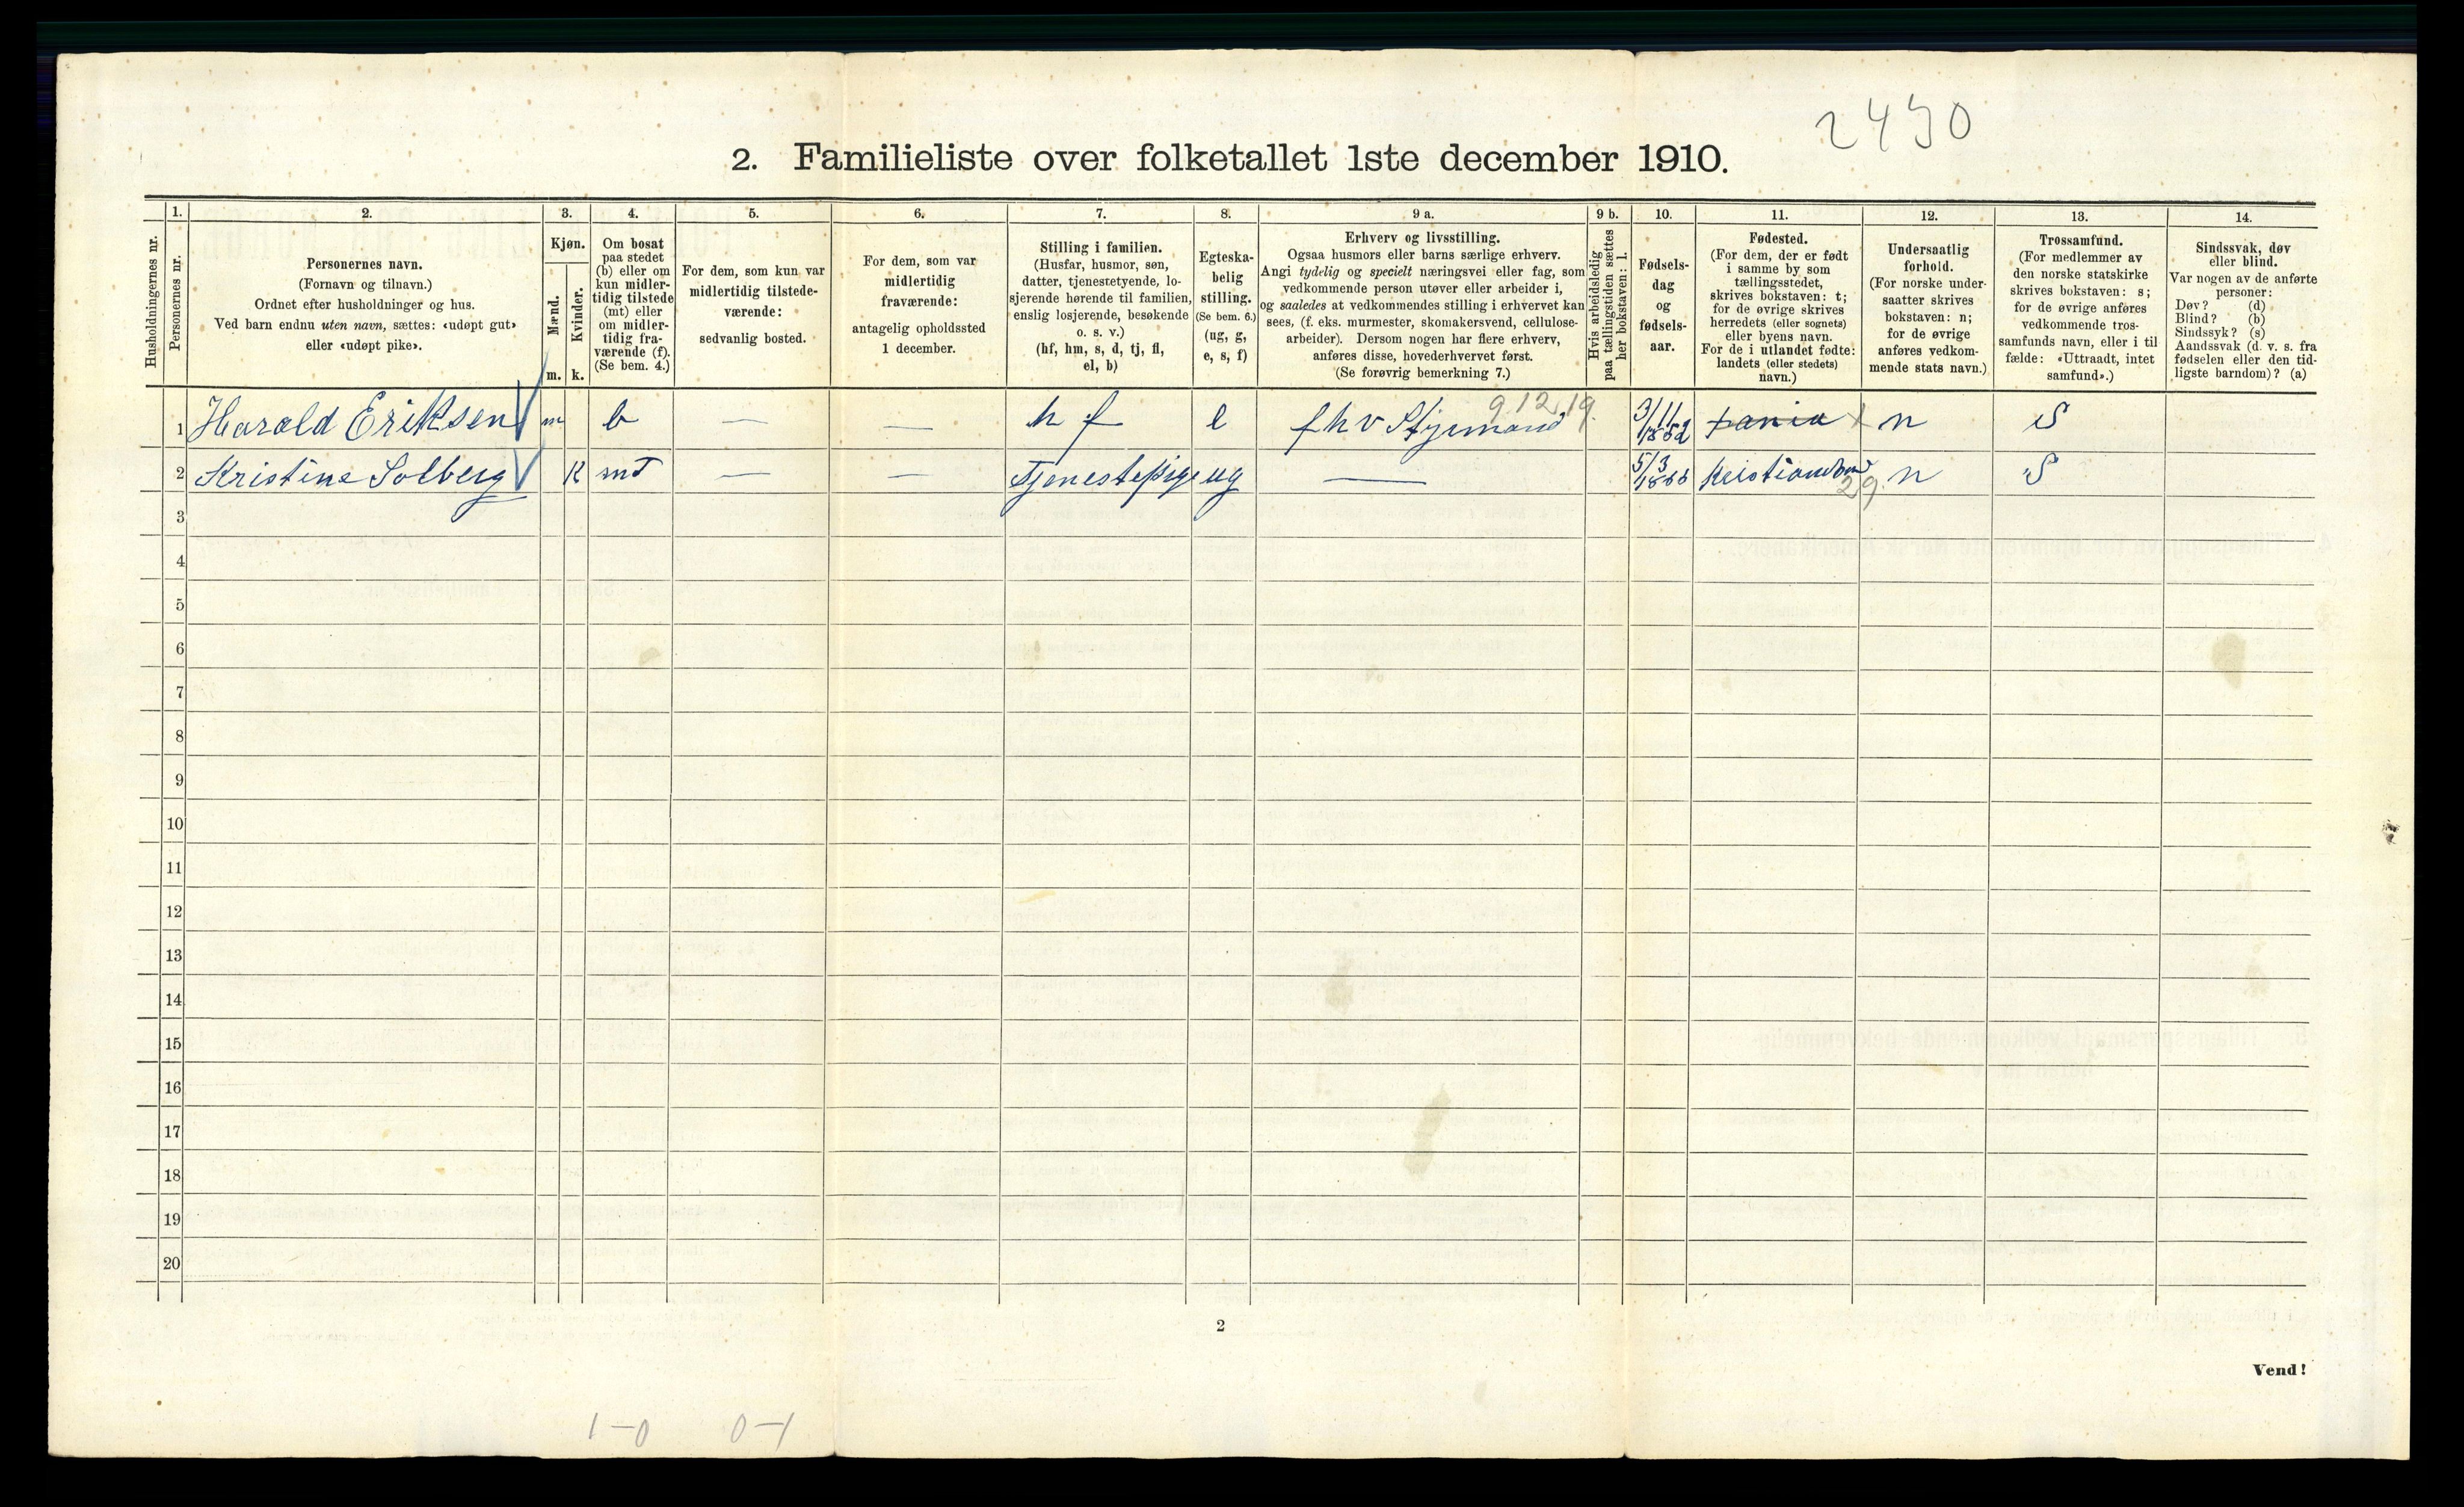 2430
2. Familieliste over folketallet 1ste december 1910.
Husholdningernes nr.
1. Personernes nr.
2. Personernes navn.
(Fornavn og tilnavn.)
Ordnet efter husholdninger og hus.
Ved barn endnu uten navn, sættes: «udøpt gut»
eller «udøpt pike».
3. Kjøn.
Mænd. m.
Kvinder. k.
4. Om bosat
paa stedet
(b) eller om
kun midler-
tidig tilstede
(mt) eller
om midler-
tidig fra-
værende (f).
(Se bem. 4.)
5. For dem, som kun var
midlertidig tilstede-
værende:
sedvanlig bosted.
6. For dem, som var
midlertidig
fraværende:
antagelig opholdssted
1 december.
7. Stilling i familien.
(Husfar, husmor, søn,
datter, tjenestetyende, lo-
sjerende hørende til familien,
enslig losjerende, besøkende
o. s. v.)
(hf, hm, s, d, tj, fl,
el, b)
8. Egteska-
belig
stilling.
(Se bem. 6.)
(ug, g,
e, s, f)
9 a. Erhverv og livsstilling.
Ogsaa husmors eller barns særlige erhverv.
Angi tydelig og specielt næringsvei eller fag, som
vedkommende person utøver eller arbeider i,
og saaledes at vedkommendes stilling i erhvervet kan
sees, (f. eks. murmester, skomakersvend, cellulose-
arbeider). Dersom nogen har flere erhverv,
anføres disse, hovederhvervet først.
(Se forøvrig bemerkning 7.)
9 b. Hvis arbeidsledig
paa tællingstiden sættes
her bokstaven: l.
10. Fødsels-
dag
og
fødsels-
aar.
11. Fødested.
(For dem, der er født
i samme by som
tællingsstedet,
skrives bokstaven: t;
for de øvrige skrives
herredets (eller sognets)
eller byens navn.
For de i utlandet fødte:
landets (eller stedets)
navn.)
12. Undersaatlig
forhold.
(For norske under-
saatter skrives
bokstaven: n;
for de øvrige
anføres vedkom-
mende stats navn.)
13. Trossamfund.
(For medlemmer av
den norske statskirke
skrives bokstaven: s;
for de øvrige anføres
vedkommende tros-
samfunds navn, eller i til
fælde: «Uttraadt, intet
samfund».)
14. Sindssvak, døv
eller blind.
Var nogen av de anførte
personer:
Døv? (d)
Blind? (b)
Sindssyk? (s)
Aandssvak (d. v. s. fra
fødselen eller den tid-
ligste barndom)? (a)
9.12.19.
1 Harald Eriksen m b — — h f e f h v Styrmand 3/11 1852 t n S
2 Kristine Solberg K mT — — Tjenestepige ug — 5/3 Kristiansund n S
29.
3
4
5
6
7
8
9
10
11
12
13
14
15
16
17
18
19
20
2
Vend!
1—0 0—1